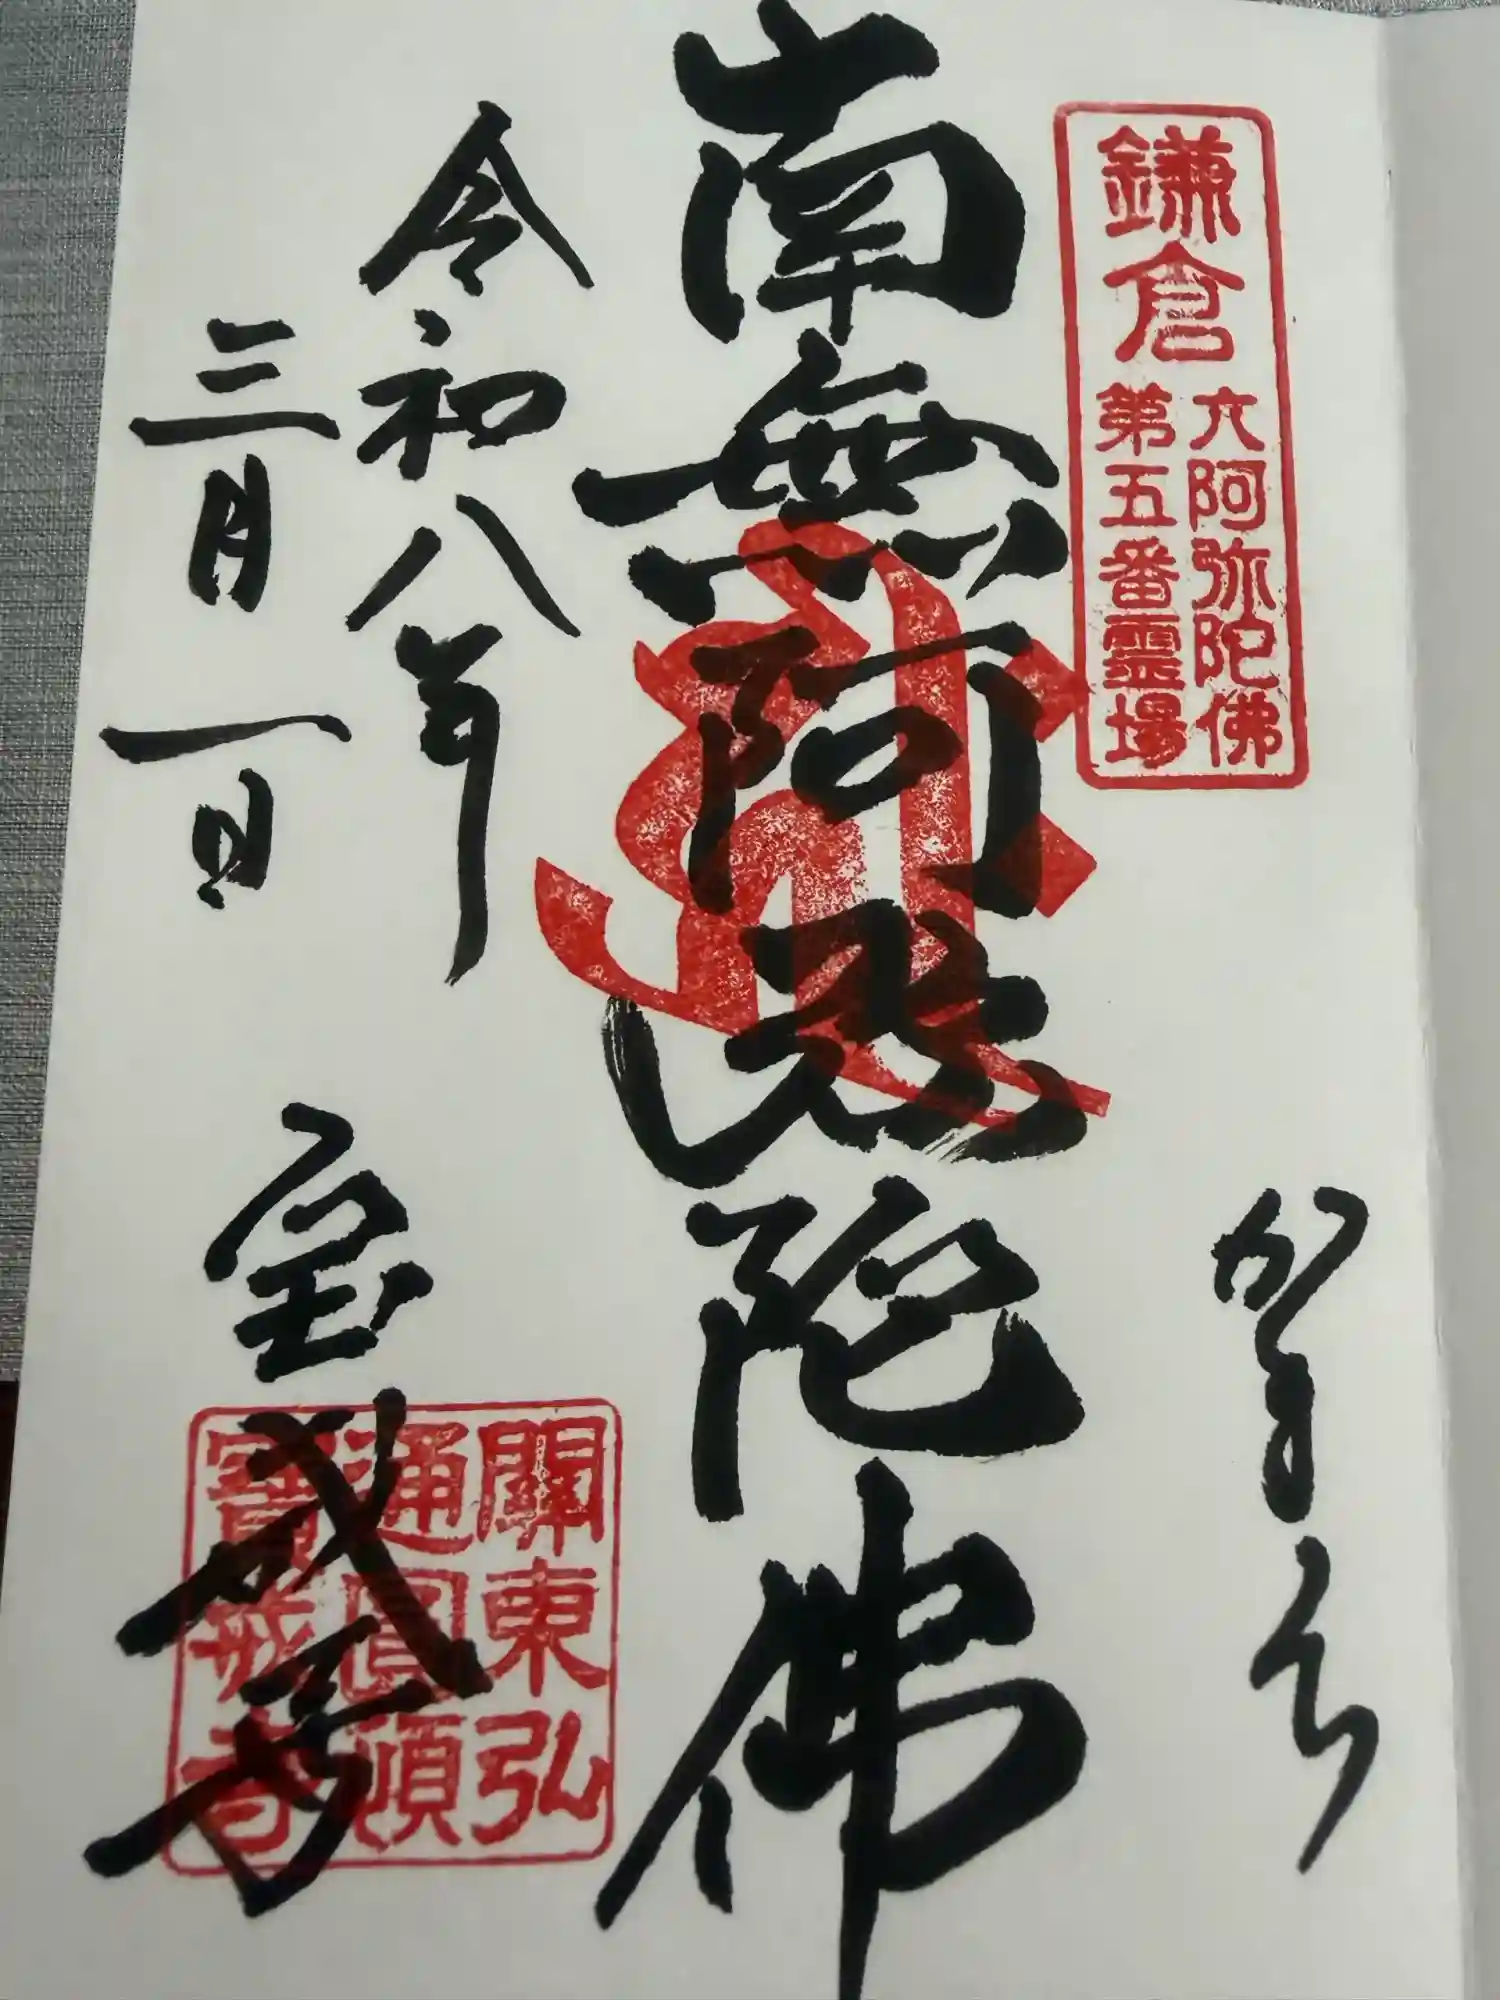 鎌倉
六阿弥陀佛
第五番霊場
奉拝
南無阿弥陀佛
令和八年
三月一日
宝戒寺
關東弘
通圓頓
寶戒寺